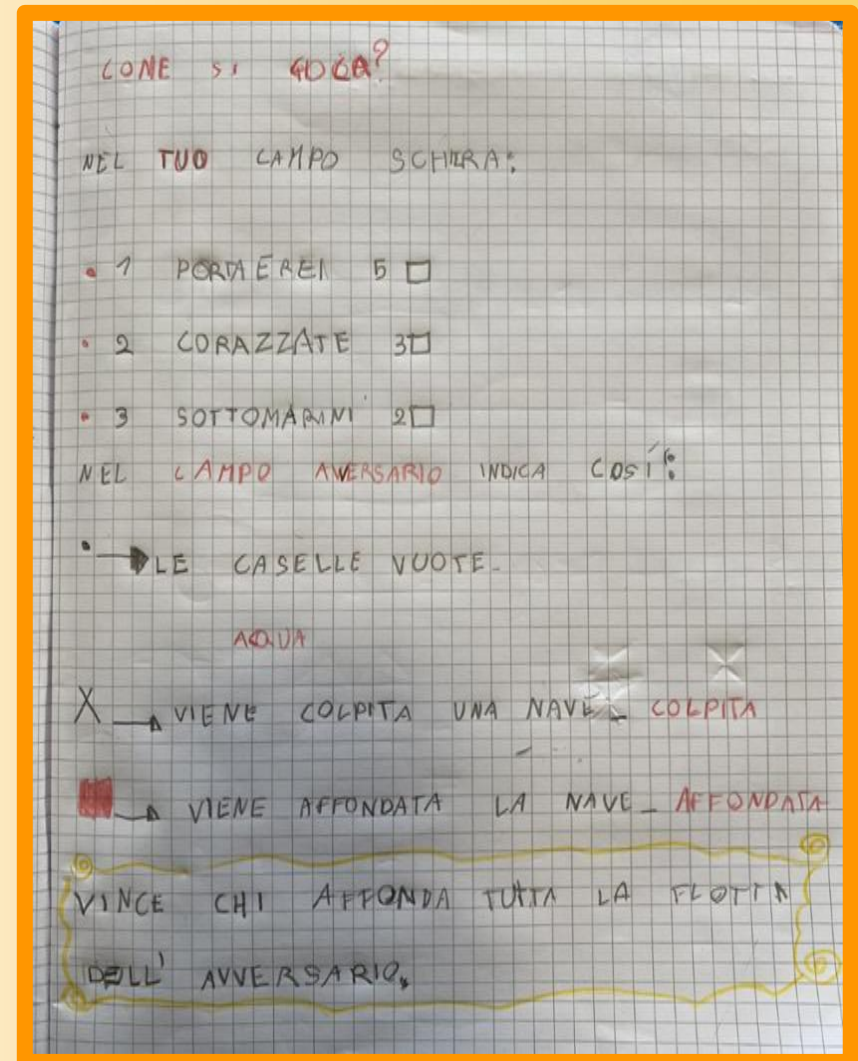 COME SI GIOCA?
NEL TUO CAMPO SCHIERA:
• 1 PORTAEREI 5 □
• 2 CORAZZATE 3 □
• 3 SOTTOMARINI 2 □
NEL CAMPO AVVERSARIO INDICA COSÍ:
• → LE CASELLE VUOTE_
ACQUA
X → VIENE COLPITA UNA NAVE_ COLPITA
→ VIENE AFFONDATA LA NAVE_ AFFONDATA
VINCE CHI AFFONDA TUTTA LA FLOTTA
DELL' AVVERSARIO.